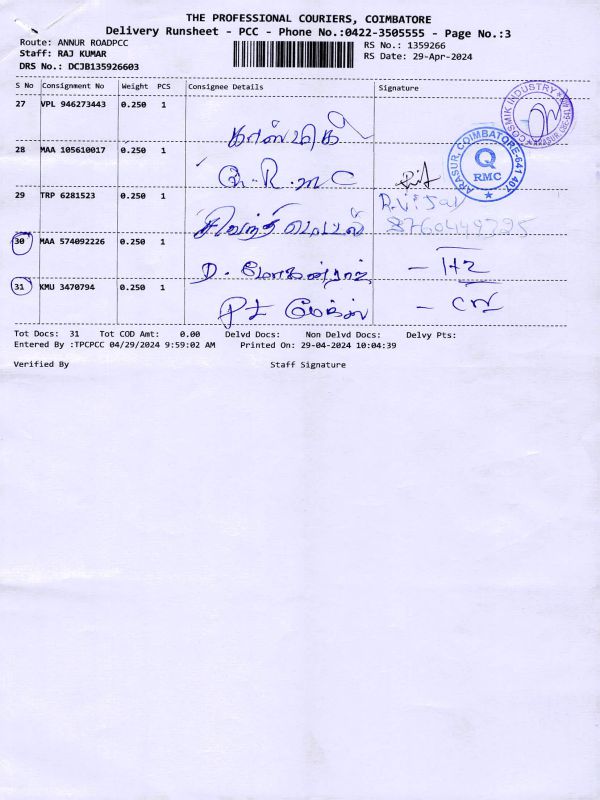 THE PROFESSIONAL COURIERS, COIMBATORE
Delivery Runsheet - PCC - Phone No.:0422-3505555 - Page No.:3
Route: ANNUR ROADPCC
RS No.: 1359266
Staff: RAJ KUMAR
RS Date: 29-Apr-2024
DRS No.: DCJB135926603
S No Consignment No Weight PCS Consignee Details Signature
27 VPL 946273443 0.250 1
COSMIK INDUSTRY
28 MAA 105610017 0.250 1
Q. R. m C
ARASUR, COIMBATORE-641 407.
Q
RMC
29 TRP 6281523 0.250 1
R. Vijay
30 MAA 574092226 0.250 1
D. மோகன்ராஜ் - H2
31 KMU 3470794 0.250 1
Tot Docs: 31 Tot COD Amt: 0.00 Delvd Docs: Non Delvd Docs: Delvy Pts:
Entered By :TPCPCC 04/29/2024 9:59:02 AM Printed On: 29-04-2024 10:04:39
Verified By Staff Signature